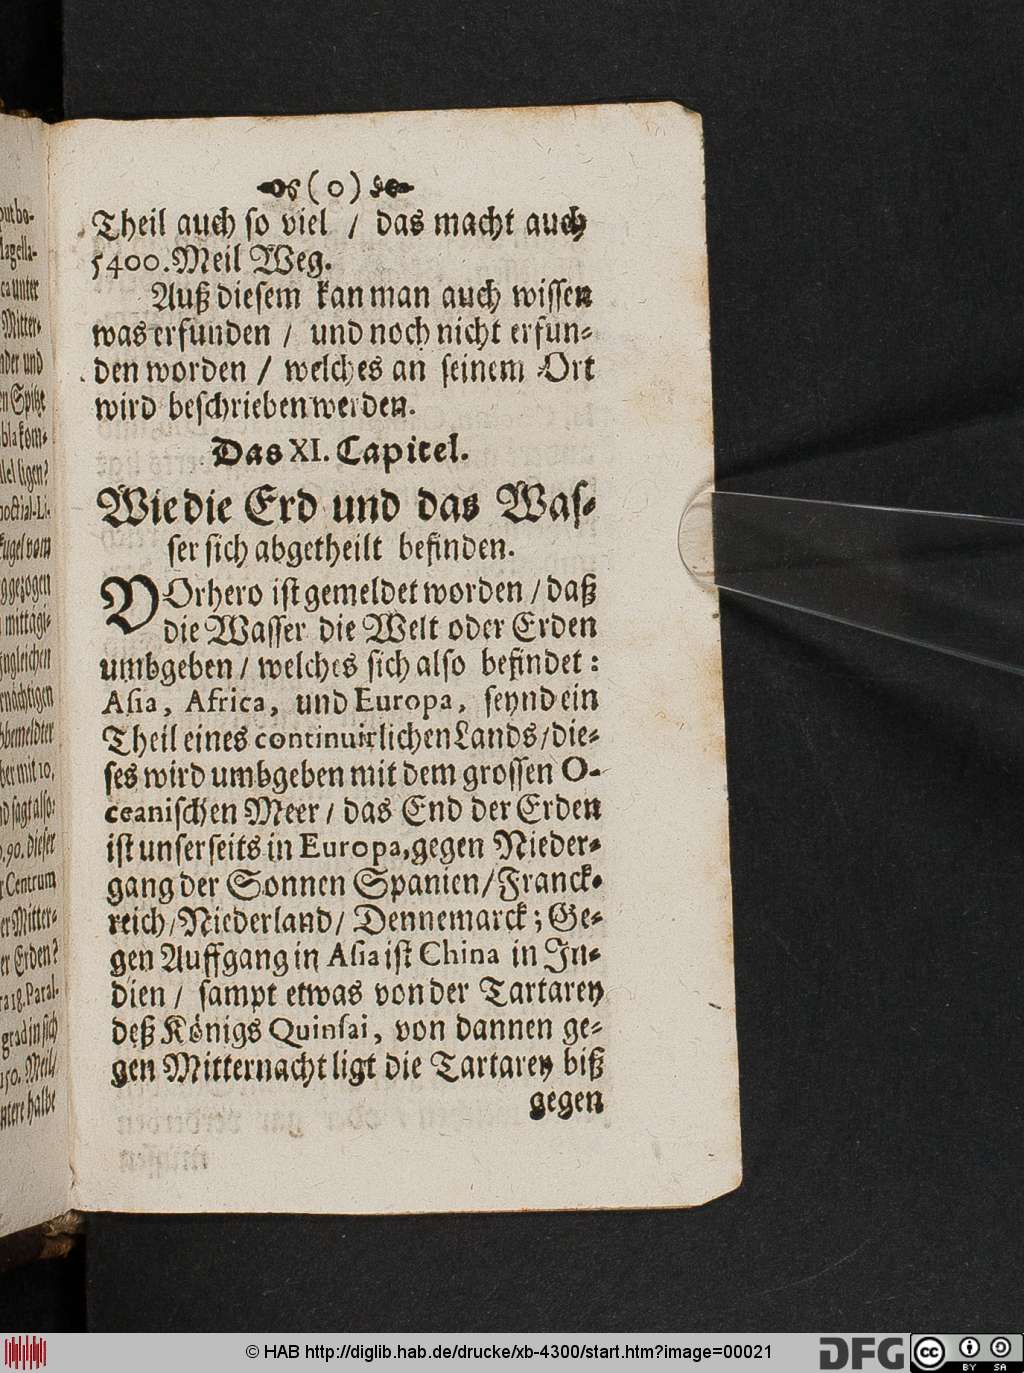 (o)
Theil auch so viel / das macht auch
5400. Meil Weg.
Auß diesem kan man auch wissen
was erfunden / und noch nicht erfun⸗
den worden / welches an seinem Ort
wird beschrieben werden.
Das XI. Capitel.
Wie die Erd und das Was⸗
ser sich abgetheilt befinden.
VOrhero ist gemeldet worden / daß
die Wasser die Welt oder Erden
umbgeben / welches sich also befindet:
Asia, Africa, und Europa, seynd ein
Theil eines continuirlichen Lands / die⸗
ses wird umbgeben mit dem grossen O-
ceanischen Meer / das End der Erden
ist unserseits in Europa, gegen Nieder⸗
gang der Sonnen Spanien / Franck⸗
reich / Niederland / Dennemarck; Ge⸗
gen Auffgang in Asia ist China in In⸗
dien / sampt etwas von der Tartarey
deß Königs Quinsai, von dannen ge⸗
gen Mitternacht ligt die Tartarey biß
gegen
© HAB http://diglib.hab.de/drucke/xb-4300/start.htm?image=00021
DFG
cc BY SA